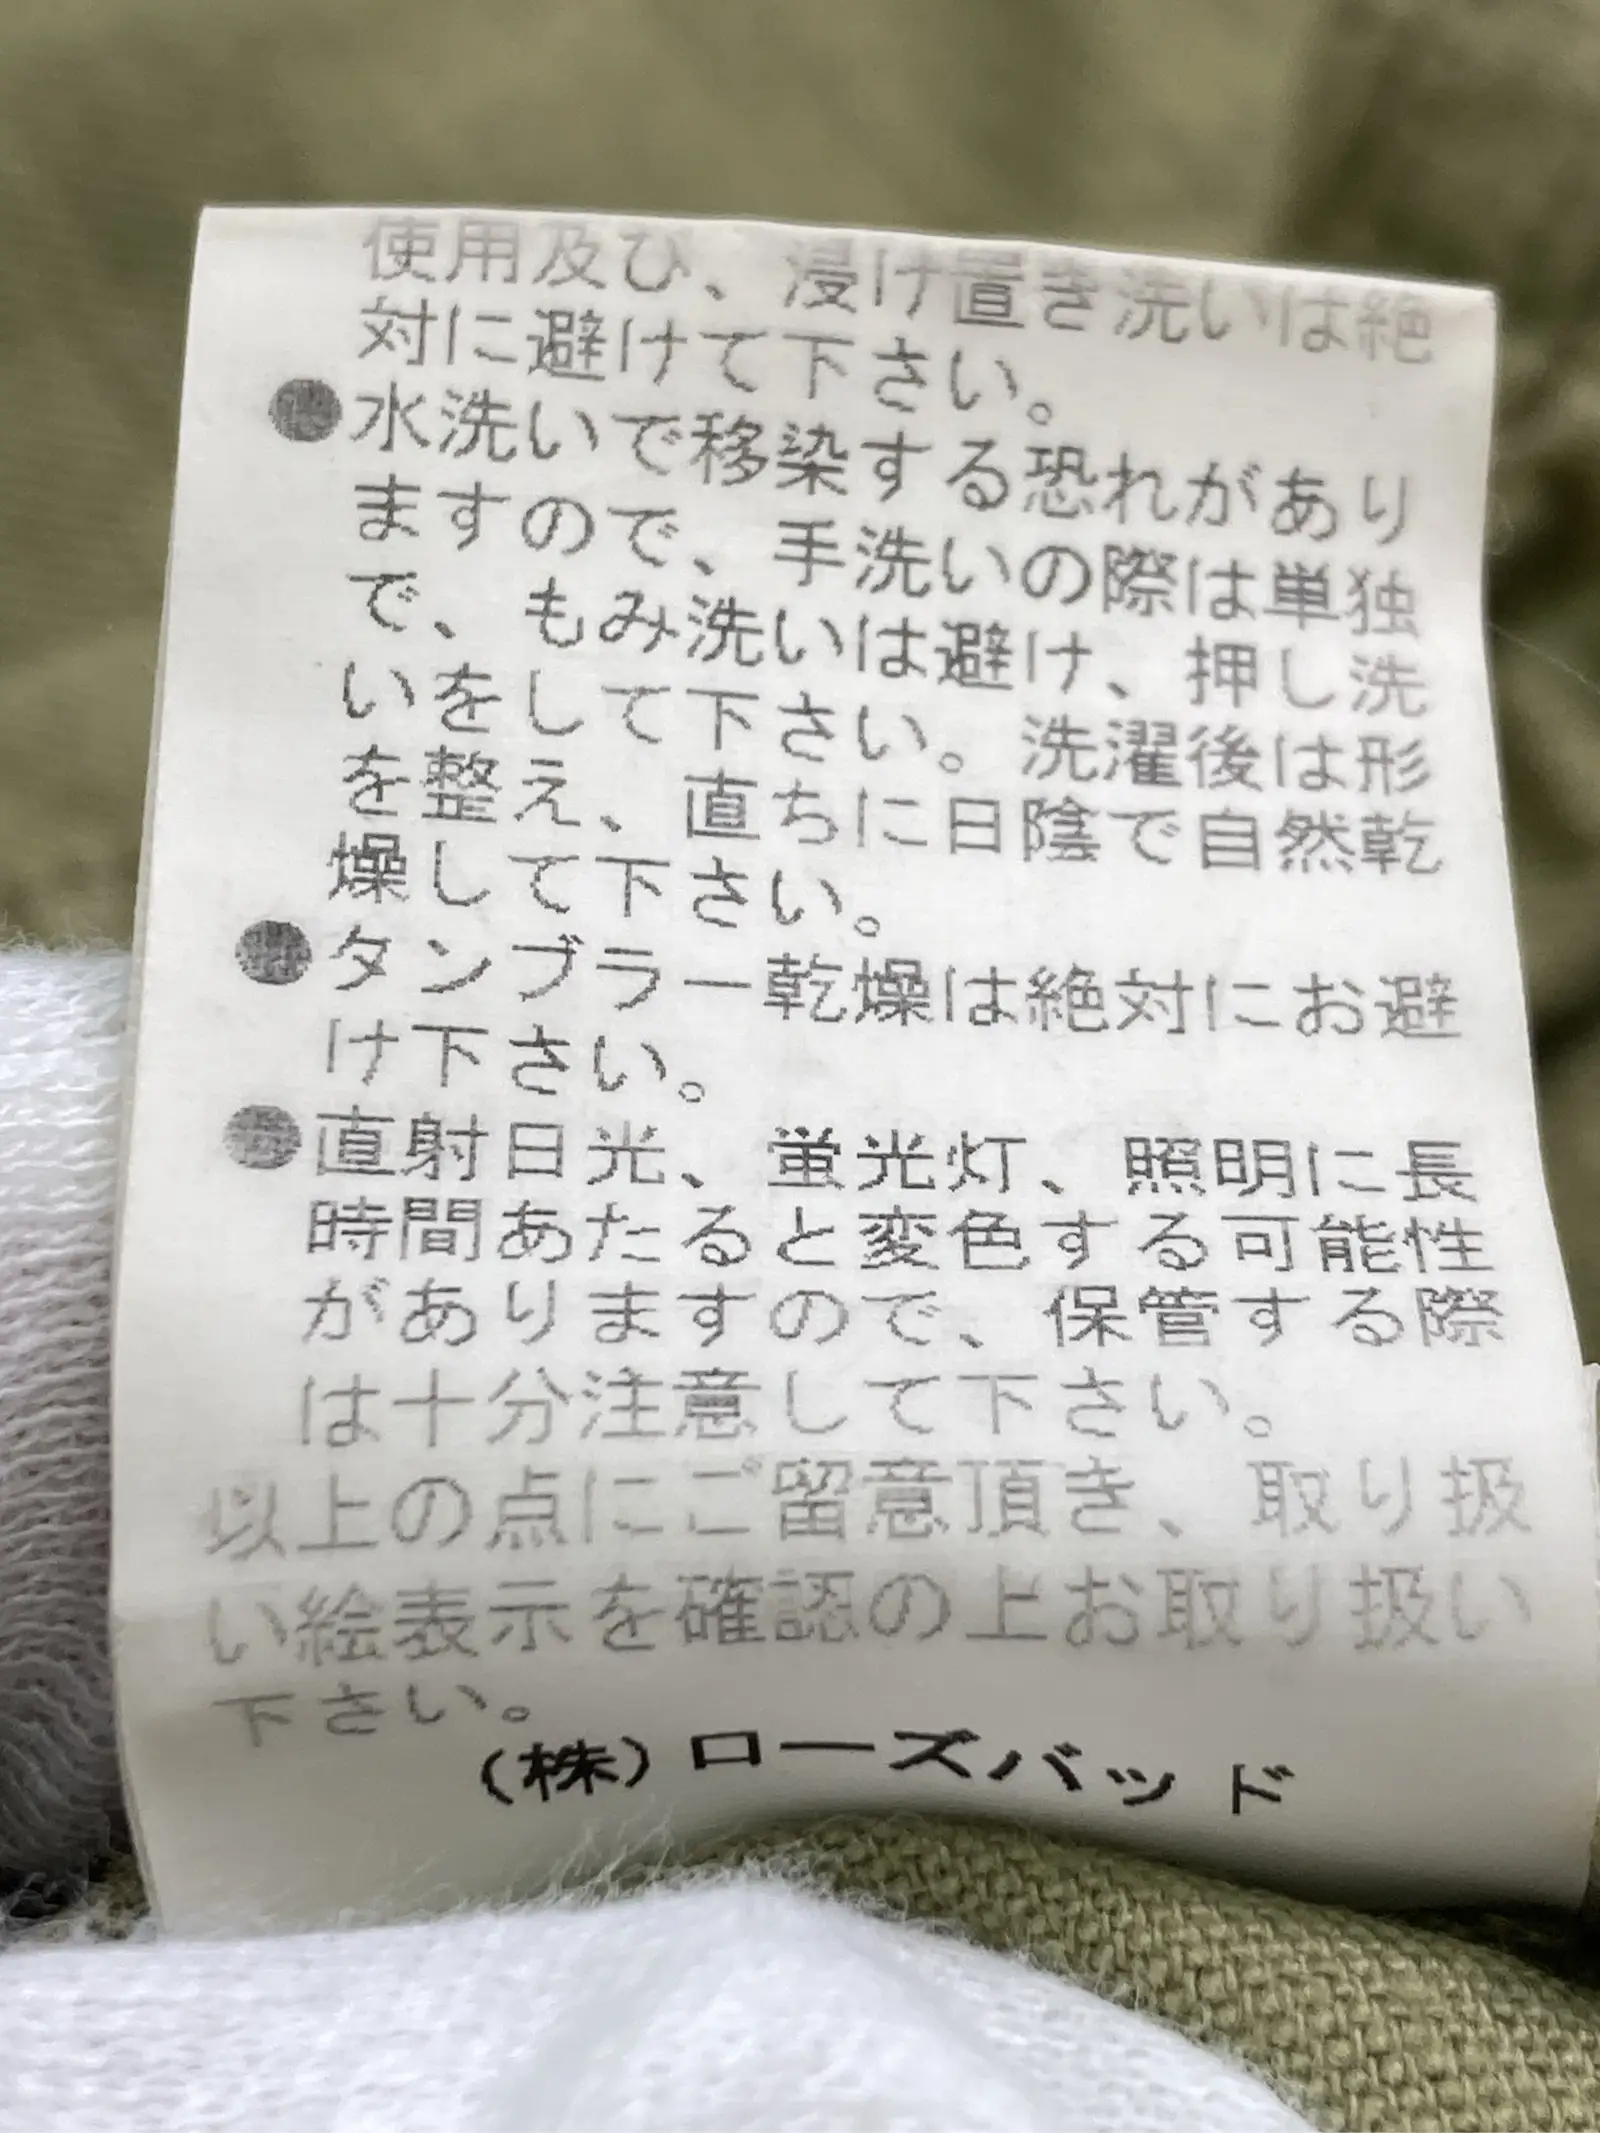 使用及び、浸け置き洗いは絶
対に避けて下さい。
●水洗いで移染する恐れがあり
ますので、手洗いの際は単独
で、もみ洗いは避け、押し洗
いをして下さい。洗濯後は形
を整え、直ちに日陰で自然乾
燥して下さい。
●タンブラー乾燥は絶対にお避
け下さい。
●直射日光、蛍光灯、照明に長
時間あたると変色する可能性
がありますので、保管する際
は十分注意して下さい。
以上の点にご留意頂き、取り扱
い絵表示を確認の上お取り扱い
下さい。
(株)ローズバッド